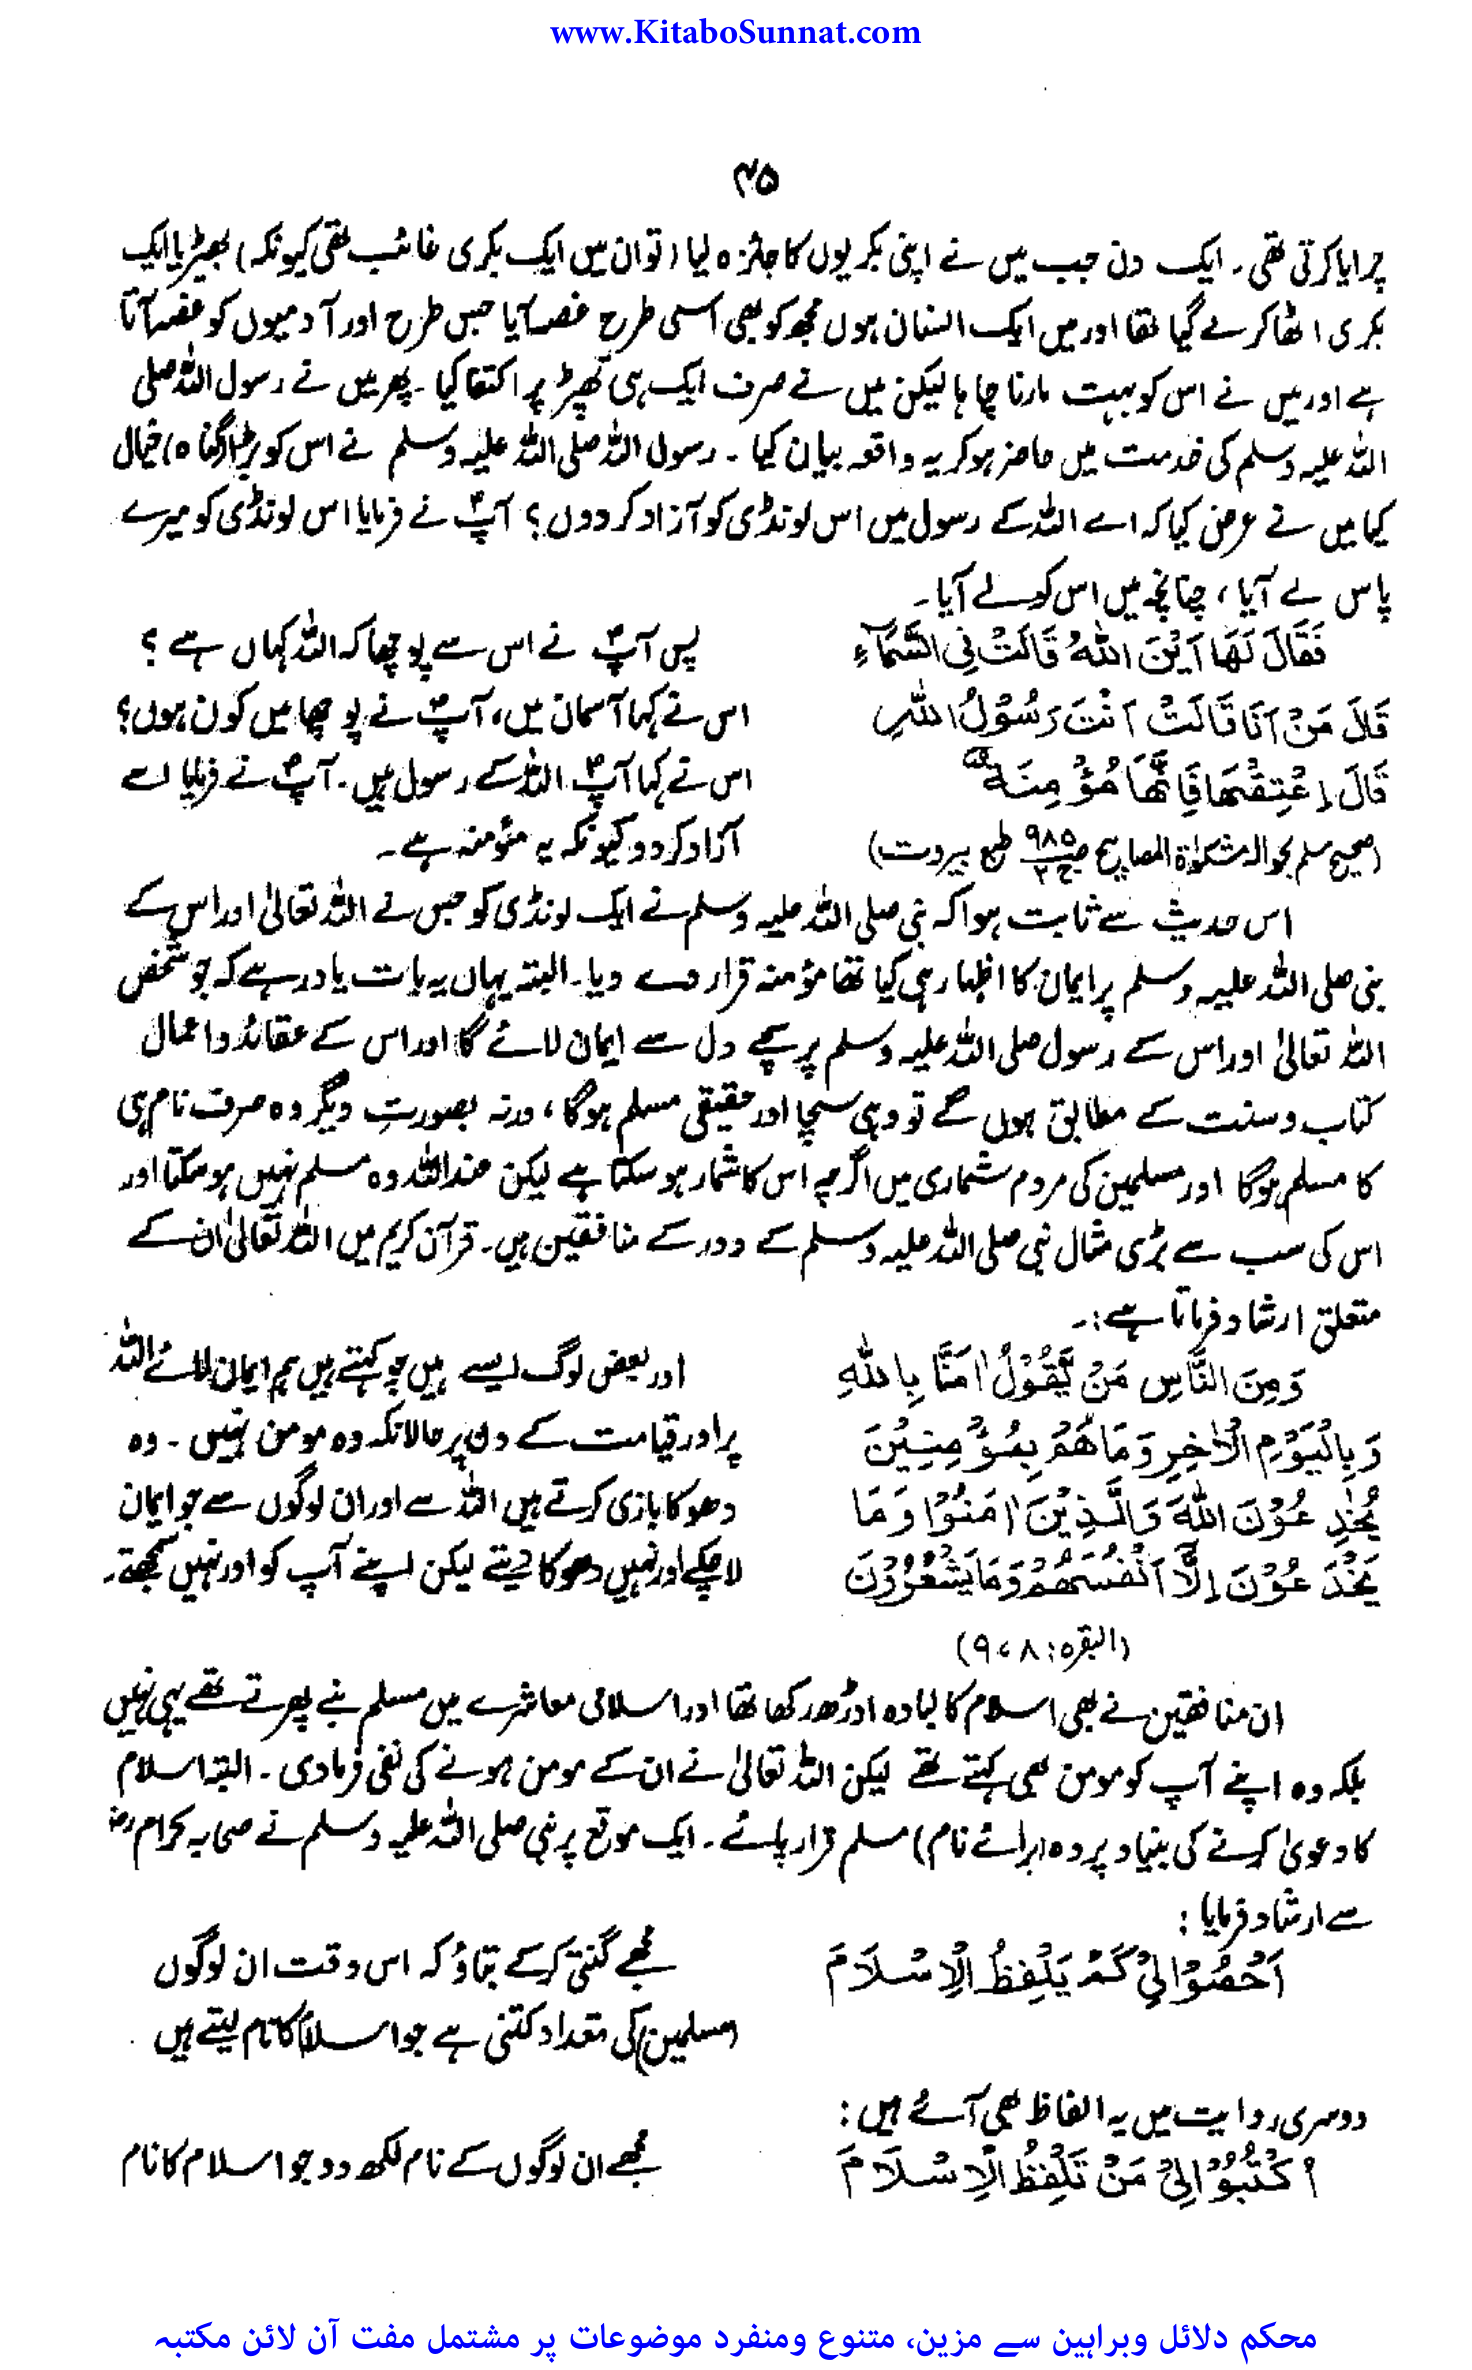 www.KitaboSunnat.com
۴۵
چرایا کرتی تھی۔ ایک دن جب میں نے اپنی بکریوں کا جائزہ لیا (تو ان میں ایک بکری غائب تھی کیونکہ) بھیڑیا ایک
بکری اٹھا کر لے گیا تھا اور میں ایک انسان ہوں مجھ کو بھی اسی طرح غصہ آیا جس طرح اور آدمیوں کو غصہ آتا
ہے اور میں نے اس کو بہت مارنا چاہا لیکن میں نے صرف ایک ہی تھپڑ پر اکتفا کیا۔ پھر میں نے رسول اللہ صلی
اللہ علیہ وسلم کی خدمت میں حاضر ہو کر یہ واقعہ بیان کیا ۔ رسول اللہ صلی اللہ علیہ وسلم نے اس کو بڑا (گناہ) خیال
کیا میں نے عرض کیا کہ اے اللہ کے رسول میں اس لونڈی کو آزاد کر دوں؟ آپؐ نے فرمایا اس لونڈی کو میرے
پاس لے آیا، چنانچہ میں اس کو لے آیا۔
فَقَالَ لَهَا اَيْنَ اللهُ قَالَتْ فِی السَّمَآءِ پس آپؐ نے اس سے پوچھا کہ اللہ کہاں ہے ؟
قَالَ مَنْ اَنَا قَالَتْ اَنْتَ رَسُوْلُ اللهِ اس نے کہا آسمان میں، آپؐ نے پوچھا میں کون ہوں؟
قَالَ اِعْتِقْهَا فَاِنَّهَا مُؤْمِنَةٌ اس نے کہا آپؐ اللہ کے رسول ہیں۔ آپؐ نے فرمایا اسے
(صحیح مسلم بحوالہ مشکوٰۃ المصابیح ص ۹۸۵ ج ۲ طبع بیروت) آزاد کر دو کیونکہ یہ مؤمنہ ہے۔
اس حدیث سے ثابت ہوا کہ نبی صلی اللہ علیہ وسلم نے ایک لونڈی کو جس نے اللہ تعالیٰ اور اس کے
نبی صلی اللہ علیہ وسلم پر ایمان کا اظہار ہی کیا تھا مؤمنہ قرار دے دیا۔ البتہ یہاں یہ بات یاد رہے کہ جو شخص
اللہ تعالیٰ اور اس کے رسول صلی اللہ علیہ وسلم پر سچے دل سے ایمان لائے گا اور اس کے عقائد و اعمال
کتاب و سنت کے مطابق ہوں گے تو وہی سچا اور حقیقی مسلم ہوگا، ورنہ بصورتِ دیگر وہ صرف نام ہی
کا مسلم ہوگا اور مسلمین کی مردم شماری میں اگرچہ اس کا شمار ہو سکتا ہے لیکن عند اللہ وہ مسلم نہیں ہو سکتا اور
اس کی سب سے بڑی مثال نبی صلی اللہ علیہ وسلم کے دور کے منافقین ہیں۔ قرآن کریم میں اللہ تعالیٰ ان کے
متعلق ارشاد فرماتا ہے:۔
وَمِنَ النَّاسِ مَنْ يَّقُوْلُ اٰمَنَّا بِاللهِ اور بعض لوگ ایسے ہیں جو کہتے ہیں ہم ایمان لائے اللہ
وَبِالْيَوْمِ الْاٰخِرِ وَمَا هُمْ بِمُؤْمِنِيْنَ پر اور قیامت کے دن پر حالانکہ وہ مومن نہیں ۔ وہ
يُخٰدِعُوْنَ اللهَ وَالَّذِيْنَ اٰمَنُوْا وَمَا دھوکا بازی کرتے ہیں اللہ سے اور ان لوگوں سے جو ایمان
يَخْدَعُوْنَ اِلَّا اَنْفُسَهُمْ وَمَا يَشْعُرُوْنَ لاچکے اور نہیں دھوکا دیتے لیکن اپنے آپ کو اور نہیں سمجھتے۔
(البقرہ: ۸، ۹)
ان منافقین نے بھی اسلام کا لبادہ اوڑھ رکھا تھا اور اسلامی معاشرے میں مسلم بنے پھرتے تھے یہی نہیں
بلکہ وہ اپنے آپ کو مومن بھی کہتے تھے لیکن اللہ تعالیٰ نے ان کے مومن ہونے کی نفی فرمادی ۔ البتہ اسلام
کا دعویٰ کرنے کی بنیاد پر وہ (برائے نام) مسلم قرار پائے ۔ ایک موقع پر نبی صلی اللہ علیہ وسلم نے صحابہ کرام رضؓ
سے ارشاد فرمایا :
اَحْصُوْا لِيْ كَمْ يَلْفِظُ الْاِسْلَامَ مجھے گنتی کرکے بتاؤ کہ اس وقت ان لوگوں
(مسلمین) کی تعداد کتنی ہے جو اسلام کا نام لیتے ہیں
دوسری روایت میں یہ الفاظ بھی آئے ہیں :
اُكْتُبُوْا لِيْ مَنْ تَلَفَّظُ الْاِسْلَامَ مجھے ان لوگوں کے نام لکھ دو جو اسلام کا نام
محکم دلائل وبراہین سے مزین، متنوع ومنفرد موضوعات پر مشتمل مفت آن لائن مکتبہ